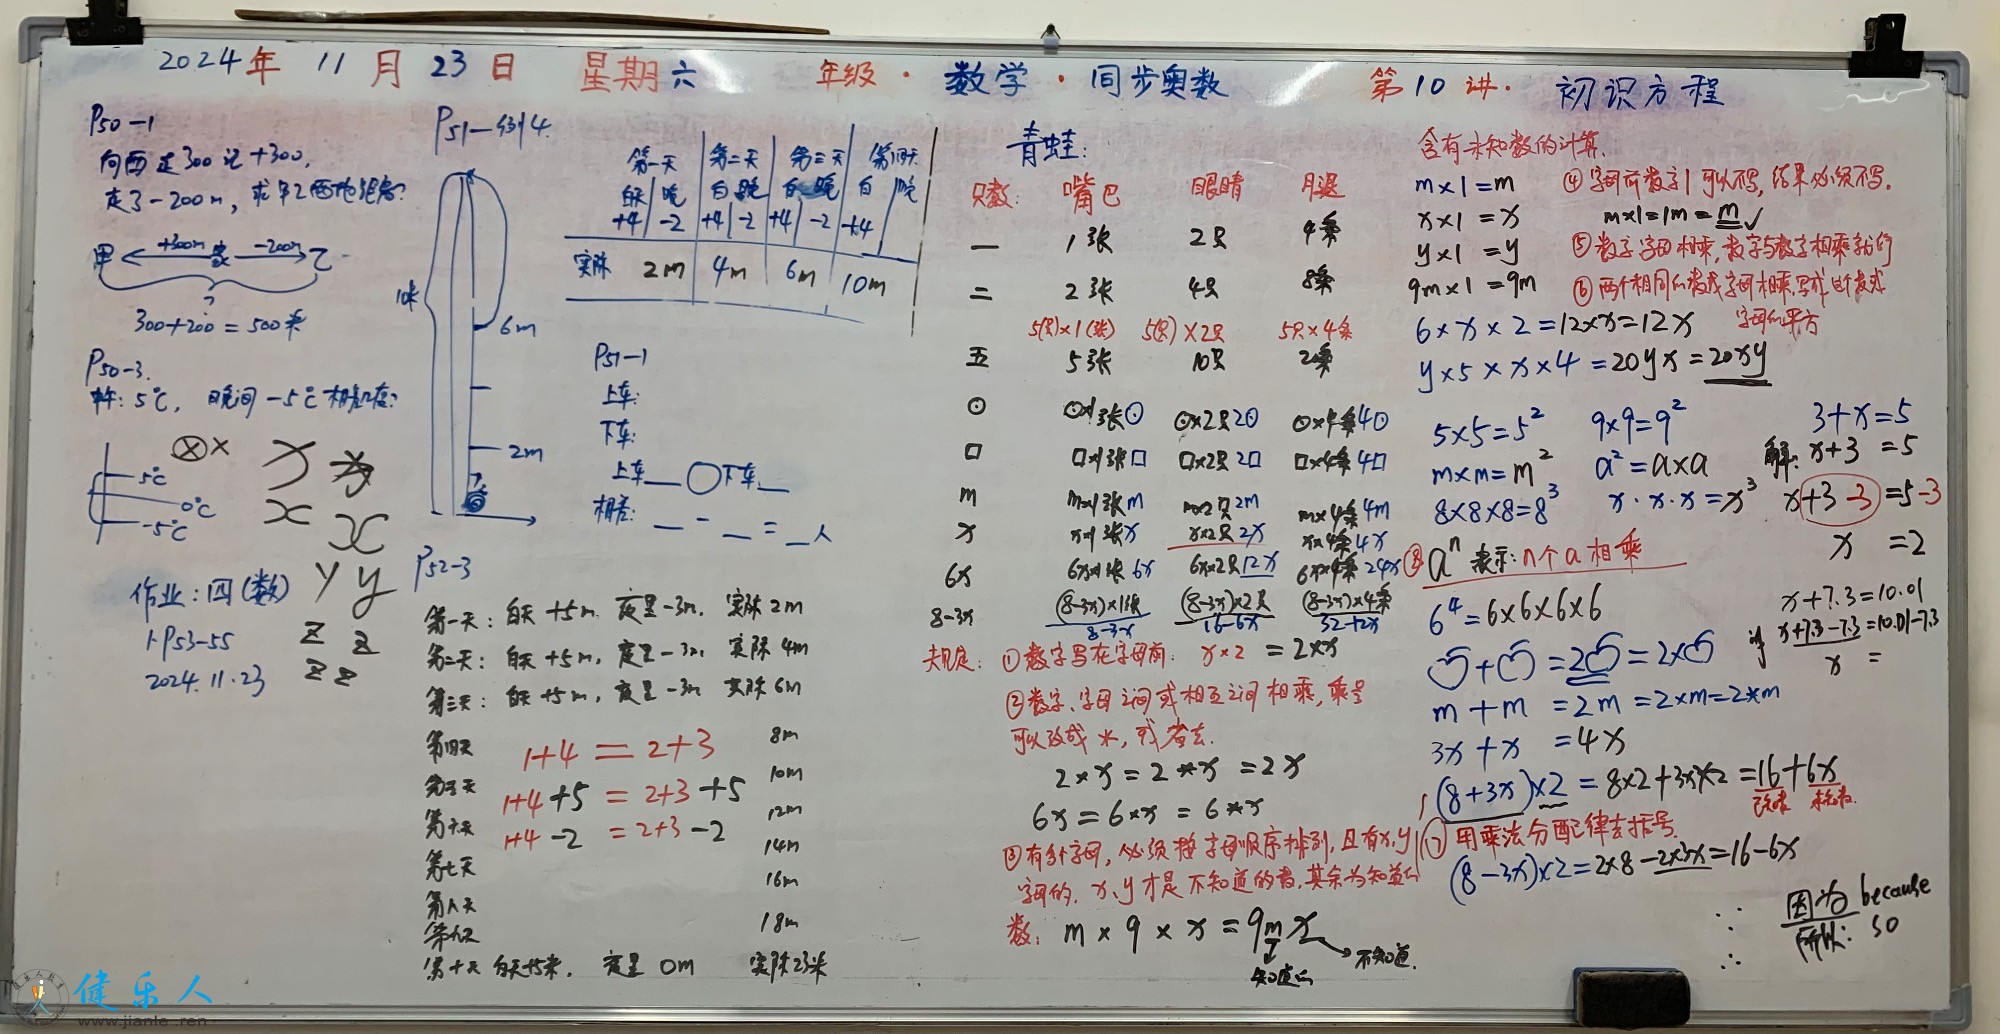 2024年 11月 23日 星期六 年级·数学·同步奥数 第10讲·初识方程
P50-1
向西走300记+300,
走了-200m,求甲乙两地距离?
甲 +300m 家 -200m 乙
?
300+200=500米
P50-3.
5℃, 晚间-5℃相差?
5℃
0℃
-5℃
x
y y
z z
z z
作业:四(数)
1. P53-55
2024.11.23
P51-例4.
10米
6m
2m
第一天 第二天 第三天 第四天
白天 晚 白 晚 白 晚 白 晚
+4 -2 +4 -2 +4 -2 +4
实际 2m 4m 6m 10m
P51-1
上车:
下车:
上车__○下车__
相差: __ - __ = __人
P52-3
第一天: 白天+5m. 夜里-3m. 实际2m
第二天: 白天+5m, 夜里-3m. 实际4m
第三天: 白天+5m, 夜里-3m 实际6m
第四天 8m
第五天 10m
第六天 12m
第七天 14m
第八天 16m
第九天 18m
第十天 白天+5米, 夜里 0m 实际23米
1+4=2+3
1+4+5=2+3+5
1+4-2=2+3-2
青蛙:
只数: 嘴巴 眼睛 月退
一 1张 2只 4条
二 2张 4只 8条
5(只)×1(张) 5(只)×2只 5只×4条
五 5张 10只 20条
⊙ ⊙×1张⊙ ⊙×2只2⊙ ⊙×4条4⊙
□ □×1张□ □×2只2□ □×4条4□
m m×1张m m×2只2m m×4条4m
x x×1张x x×2只2x x×4条4x
6x 6x×1张6x 6x×2只12x 6x×4条24x
8-3x (8-3x)×1张 (8-3x)×2只 (8-3x)×4条
8-3x 16-6x 32-12x
规定: ①数字写在字母前: x×2=2×x
②数字、字母之间或相互之间相乘,乘号
可以改成*,或省去.
2×x=2*x=2x
6x=6×x=6*x
③有多个字母,必须按字母顺序排列,且有x,y
字母的. x,y才是不知道的数,其余为知道的
数: m×9×x=9mx
知道的
不知道.
含有未知数的计算.
m×1=m
x×1=x
y×1=y
9m×1=9m
④字母前数字1可以不写,结果必须不写.
m×1=1m=m✓
⑤数字字母相乘,数字与数字相乘就行
⑥两个相同的数或字母相乘,写成这个数或
字母的平方
6×x×2=12×x=12x
y×5×x×4=20yx=20xy
5×5=5² 9×9=9²
m×m=m² a²=a×a
8×8×8=8³ x·x·x=x³
⑧aⁿ表示:n个a相乘
6⁴=6×6×6×6
m+m=2m=2×m=2*m
3x+x=4x
(8+3x)×2=8×2+3x×2=16+6x
已知数 未知数.
⑦用乘法分配律去括号.
(8-3x)×2=2×8-2×3x=16-6x
3+x=5
解: x+3=5
x+3-3=5-3
x=2
x+7.3=10.01
x+7.3-7.3=10.01-7.3
x=
∵ 因为 because
∴ 所以: so
健乐人
www.jianle.ren